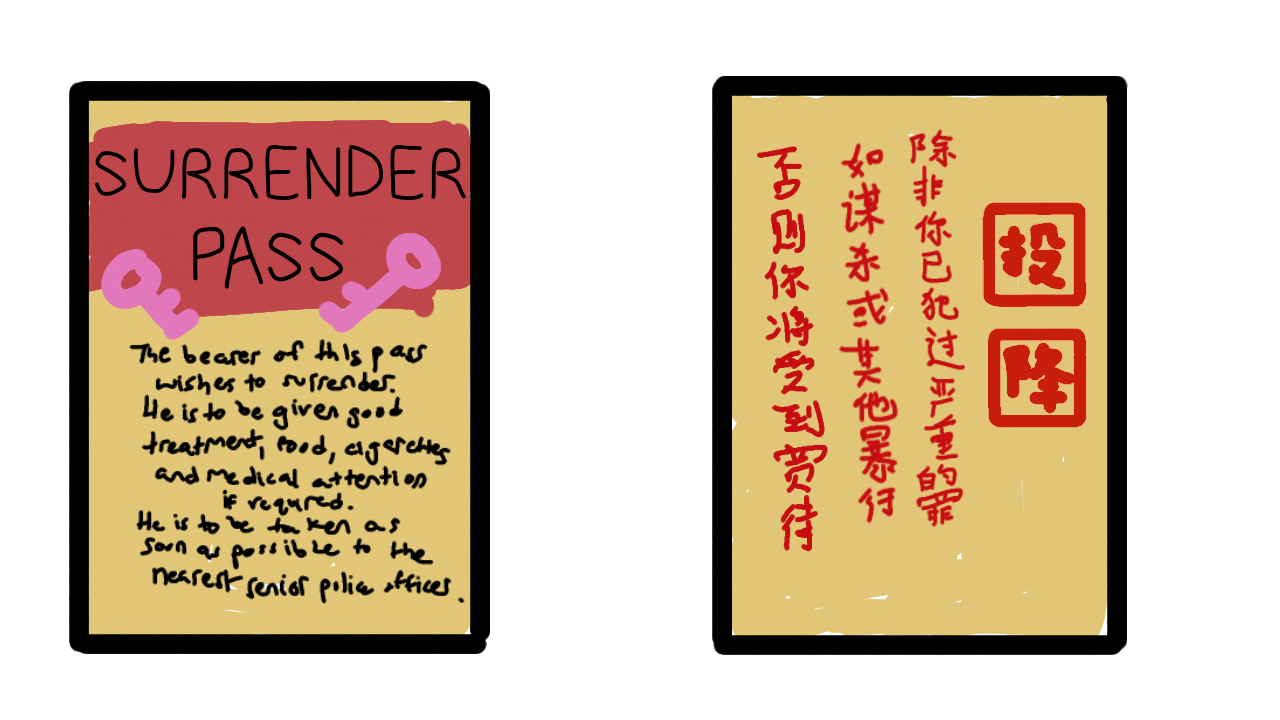 SURRENDER
PASS
The bearer of this pass
wishes to surrender.
He is to be given good
treatment, food, cigarettes
and medical attention
if required.
He is to be taken as
soon as possible to the
nearest senior police officer.
投降
除非你已犯过严重的罪
如谋杀或其他暴行
否则你将受到待